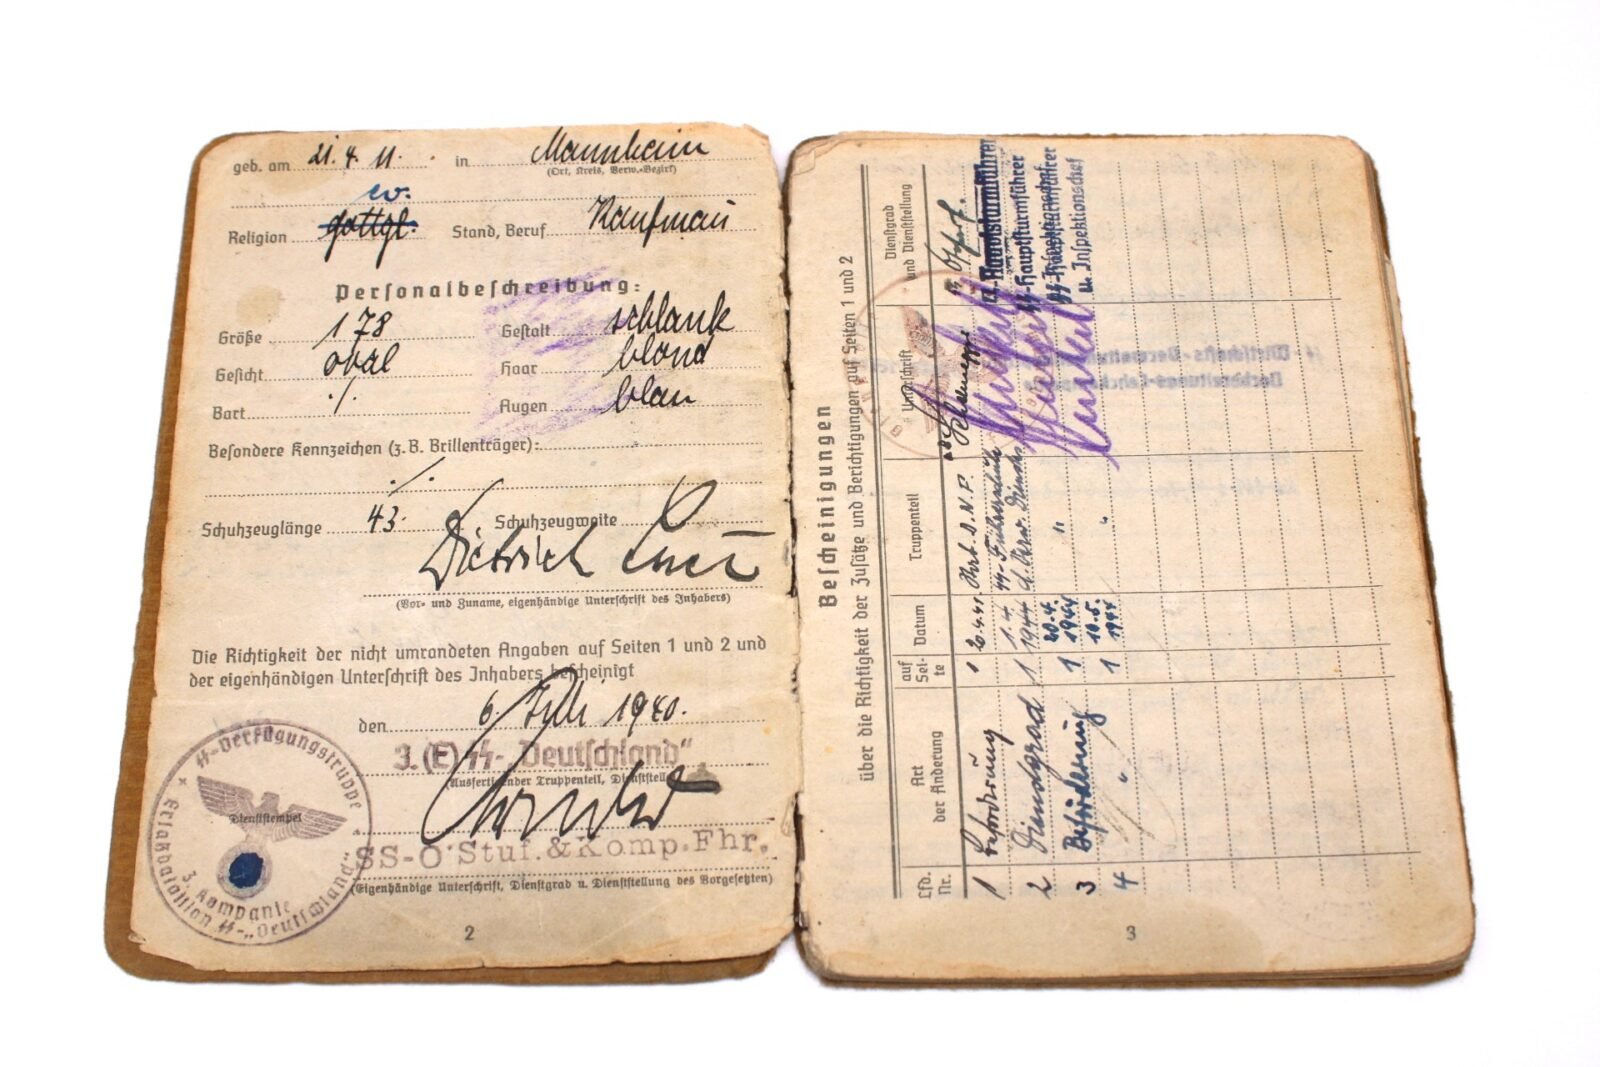 geb. am 21. 4. 11. in Mannheim
(Ort, Kreis, Verw.-Bezirk)
ev.
Religion gottgl. Stand, Beruf Kaufmann
Personalbeschreibung:
Größe 178 Gestalt schlank
Gesicht oval Haar blond
Bart ./. Augen blau
Besondere Kennzeichen (z. B. Brillenträger):
./.
Schuhzeuglänge 43. Schuhzeugweite
Dietrich
(Vor- und Zuname, eigenhändige Unterschrift des Inhabers)
Die Richtigkeit der nicht umrandeten Angaben auf Seiten 1 und 2 und
der eigenhändigen Unterschrift des Inhabers bescheinigt
den 6. Juli 1940.
3. (E) SS-„Deutschland"
(Ausfertigender Truppenteil, Dienststelle)
SS-O'Stuf. & Komp. Fhr.
(Eigenhändige Unterschrift, Dienstgrad u. Dienststellung des Vorgesetzten)
SS-Verfügungstruppe
Dienststempel
3. Kompanie
Ersatzbataillon SS-„Deutschland"
2
Bescheinigungen
über die Richtigkeit der Zusätze und Berichtigungen auf Seiten 1 und 2
Lfd. Nr. Art der Änderung auf Seite Datum Truppenteil Unterschrift Dienstgrad und Dienststellung
1 1 20.4.41
2 Dienstgrad 1 1.4. 1944 SS-Führerschule d. Verw. Dienstes SS-Hauptsturmführer
3 Beförderung 1 20.4. 1944 " SS-Hauptsturmführer
4 " 1 10.5. 1944 " SS-Hauptsturmführer u. Inspektionschef
3